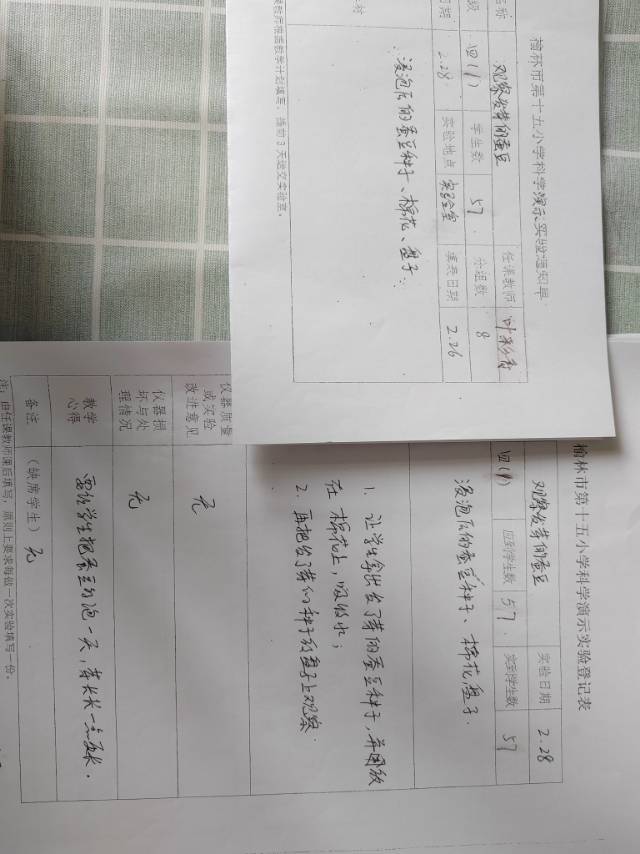 榆林市第十五小学科学演示实验通知单
名称 观察发芽的蚕豆 任课教师
级 四(1) 学生数 57. 分组数 8
日期 2.28. 实验地点 实验室 填表日期 2.26
材
浸泡后的蚕豆种子、棉花、盘子.
教师根据教学计划填写,提前3天送交实验室。
榆林市第十五小学科学演示实验登记表
观察发芽的蚕豆 实验日期 2.28
四(1) 应到学生数 57. 实到学生数 57
浸泡后的蚕豆种子、棉花,盘子.
1. 让学生拿出发了芽的蚕豆种子,并用放
在棉花上,吸收水;
2. 再把发了芽的种子的盘子上观察.
仪器质量
或实验
改进意见
无
仪器损
坏与处
理情况
无
教学
心得
要给学生把蚕豆多泡一天,芽长长一点更长.
备注 (缺席学生) 无
注:由任课教师课后填写,原则上要求每做一次实验填写一份。